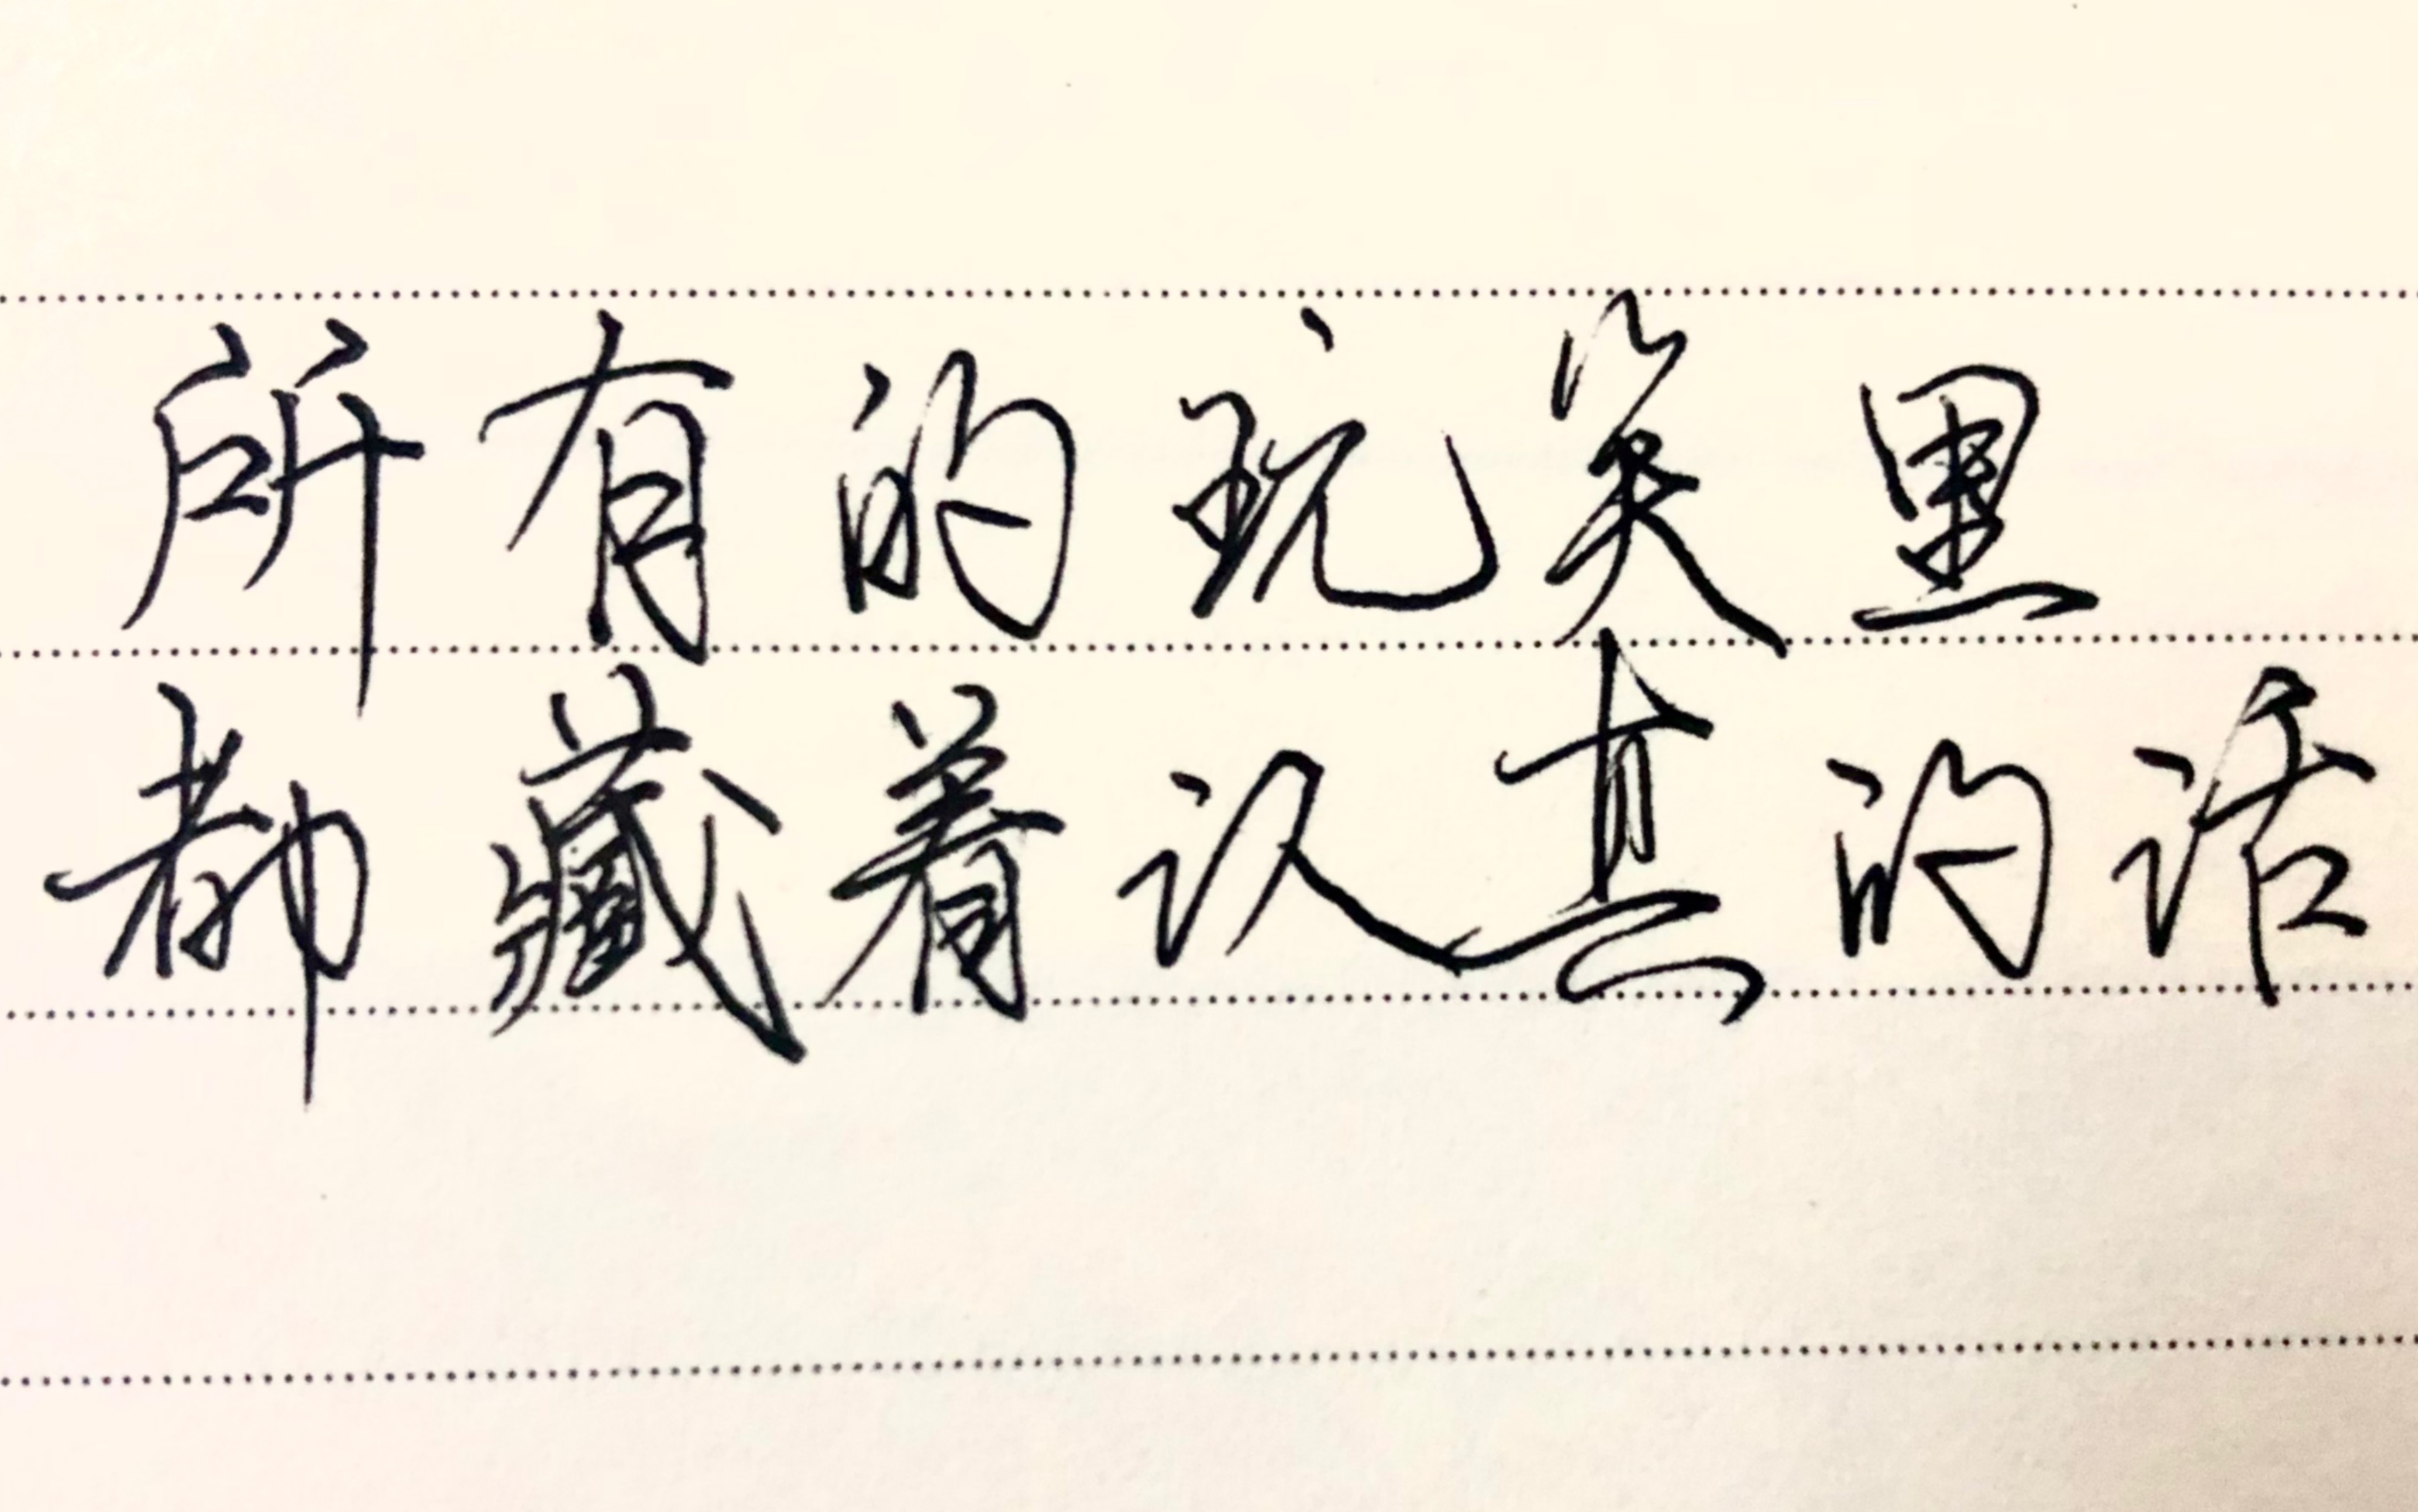 所有的玩笑里
都藏着认真的话